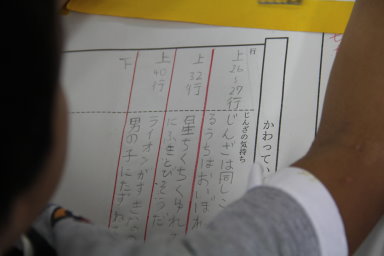 かわってい
行
じんざの気持ち
上26〜27行
じんざは同じこ
るうちはおいぼれ
上32行
星ちくちくゆれ
にふきとびそうだ
上40行
ライオンがすき
男の子にたずね
下